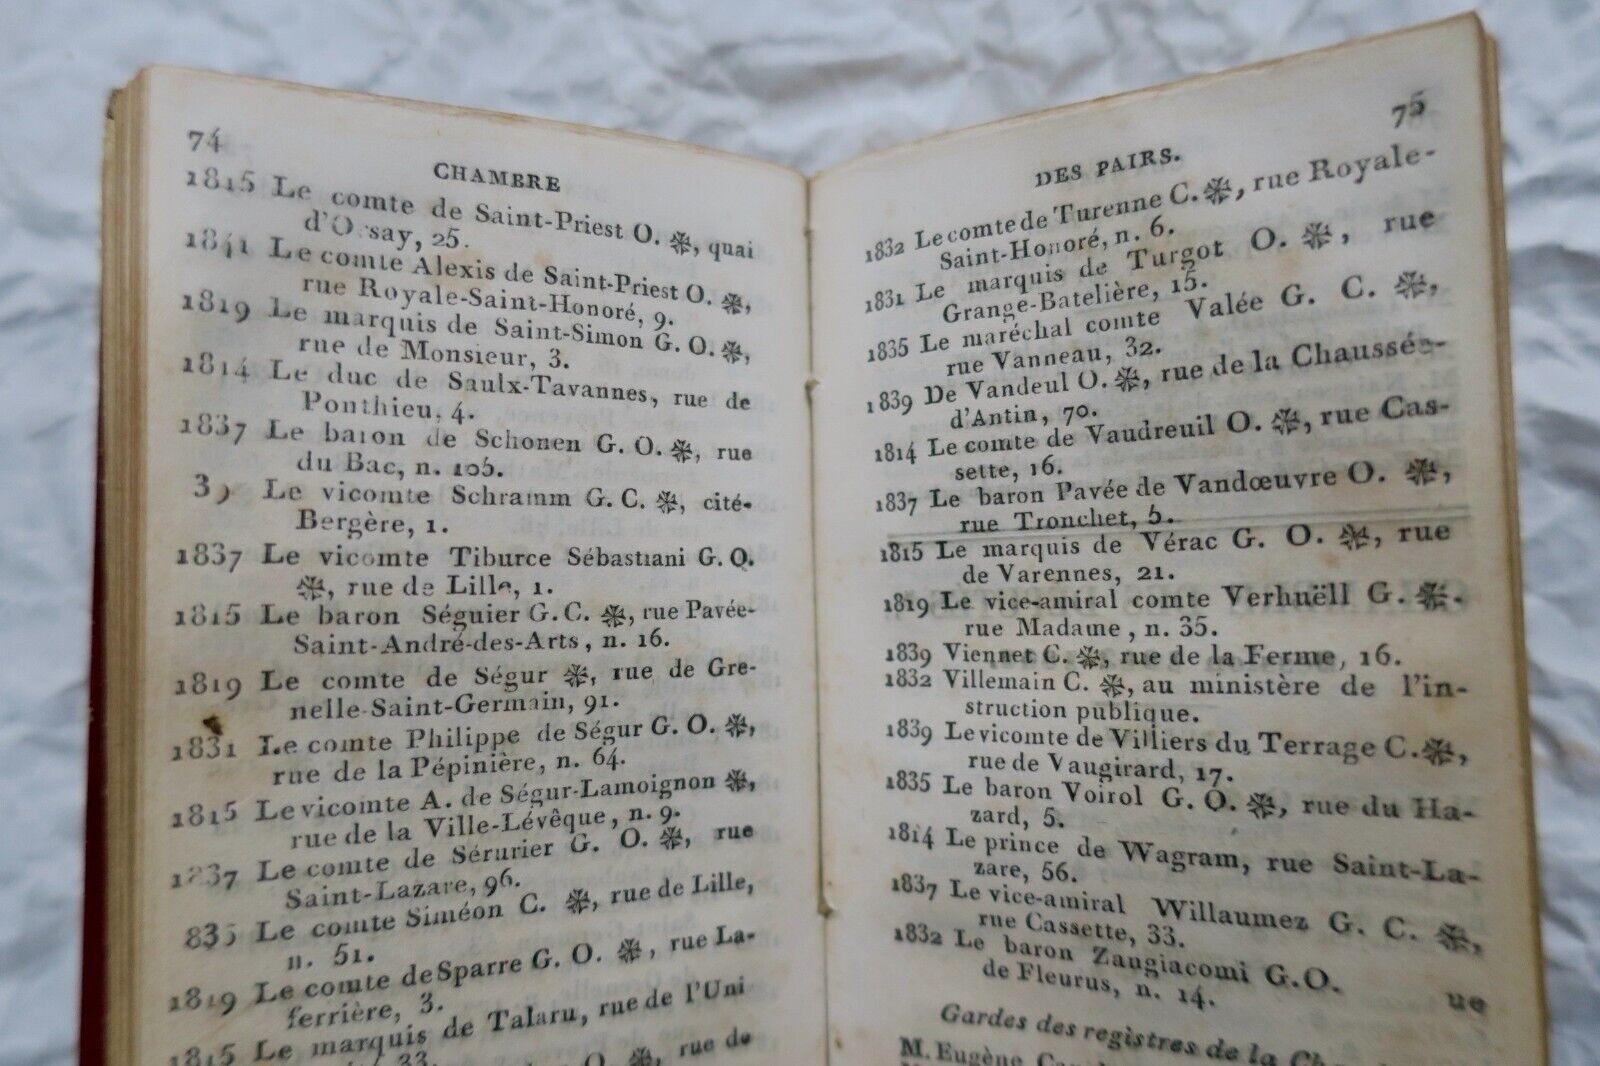 74
CHAMBRE
1815 Le comte de Saint-Priest O. ❋, quai
d'Orsay, 25.
1841 Le comte Alexis de Saint-Priest O. ❋,
rue Royale-Saint-Honoré, 9.
1819 Le marquis de Saint-Simon G. O. ❋,
rue de Monsieur, 3.
1814 Le duc de Saulx-Tavannes, rue de
Ponthieu, 4.
1837 Le baron de Schonen G. O. ❋, rue
du Bac, n. 105.
Le vicomte Schramm G. C. ❋, cité-
Bergère, 1.
1837 Le vicomte Tiburce Sébastiani G. O.
❋, rue de Lille, 1.
1815 Le baron Séguier G. C. ❋, rue Pavée-
Saint-André-des-Arts, n. 16.
1819 Le comte de Ségur ❋, rue de Gre-
nelle-Saint-Germain, 91.
1831 Le comte Philippe de Ségur G. O. ❋,
rue de la Pépinière, n. 64.
1815 Le vicomte A. de Ségur-Lamoignon ❋,
rue de la Ville-Lévêque, n. 9.
1837 Le comte de Sérurier G. O. ❋, rue
Saint-Lazare, 96.
835 Le comte Siméon C. ❋, rue de Lille,
n. 51.
1819 Le comte de Sparre G. O. ❋, rue La-
ferrière, 3.
1815 Le marquis de Talaru, rue de l'Uni
33.
O. ❋, rue de
75
DES PAIRS.
1832 Le comte de Turenne C. ❋, rue Royale-
Saint-Honoré, n. 6.
1831 Le marquis de Turgot O. ❋, rue
Grange-Batelière, 15.
1835 Le maréchal comte Valée G. C. ❋,
rue Vanneau, 32.
1839 De Vandeul O. ❋, rue de la Chaussée-
d'Antin, 70.
1814 Le comte de Vaudreuil O. ❋, rue Cas-
sette, 16.
1837 Le baron Pavée de Vandœuvre O. ❋,
rue Tronchet, 5.
1815 Le marquis de Vérac G. O. ❋, rue
de Varennes, 21.
1819 Le vice-amiral comte Verhuëll G. ❋.
rue Madame, n. 35.
1839 Viennet C. ❋, rue de la Ferme, 16.
1832 Villemain C. ❋, au ministère de l'in-
struction publique.
1839 Le vicomte de Villiers du Terrage C. ❋,
rue de Vaugirard, 17.
1835 Le baron Voirol G. O. ❋, rue du Ha-
zard, 5.
1814 Le prince de Wagram, rue Saint-La-
zare, 56.
1837 Le vice-amiral Willaumez G. C. ❋,
rue Cassette, 33.
1832 Le baron Zangiacomi G. O. ue
de Fleurus, n. 14.
Gardes des registres de la Ch
M. Eugène